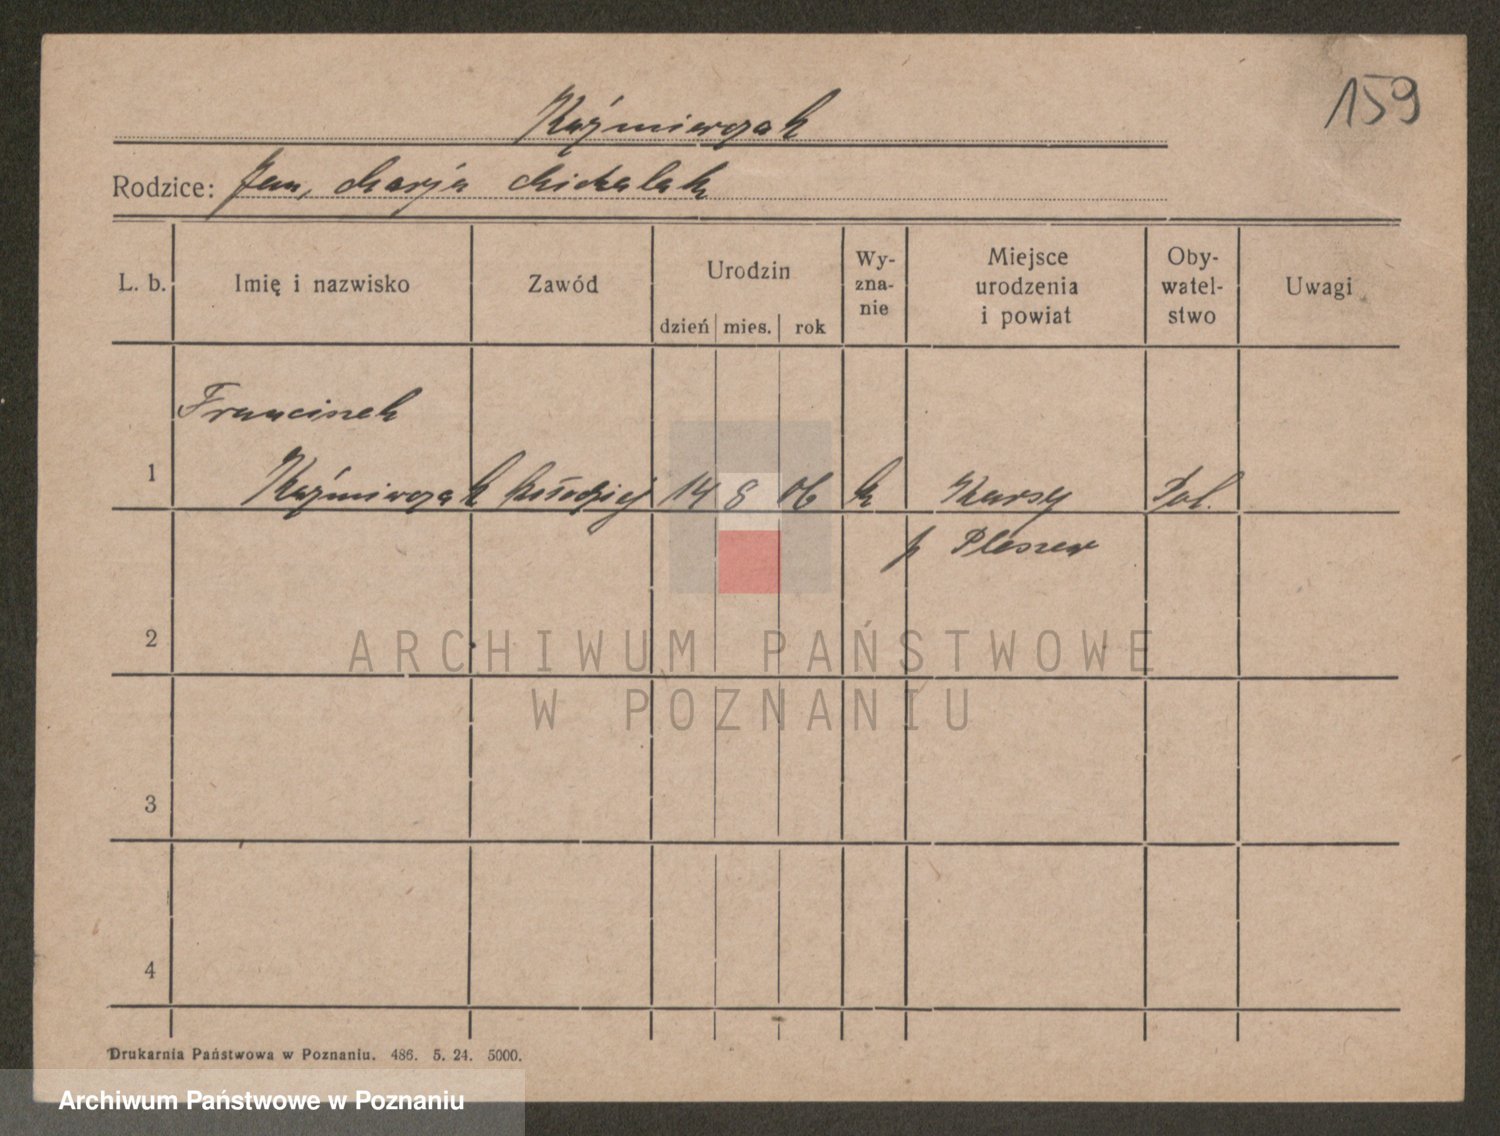 159
Kaźmierczak
Rodzice: Jan, Marja Michalak
L. b. Imię i nazwisko Zawód Urodzin dzień mies. rok Wy-zna-nie Miejsce urodzenia i powiat Oby-watel-stwo Uwagi
Franciszek
1 Kaźmierczak kołodziej 14 8 06 k Karsy Pol.
p Pleszew
2
ARCHIWUM PAŃSTWOWE
W POZNANIU
3
4
Drukarnia Państwowa w Poznaniu. 486. 5. 24. 5000.
Archiwum Państwowe w Poznaniu